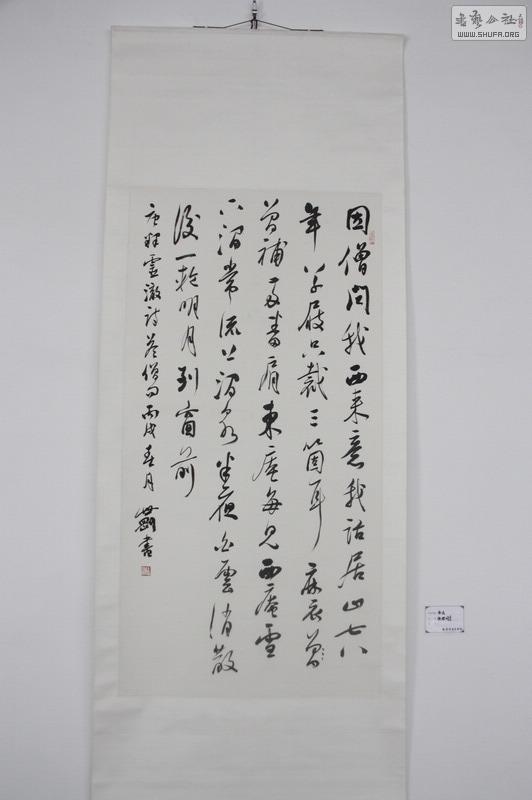 因僧問我西来意我話居山七八
年草履只裁三箇耳麻衣曾
曾補兩番肩東庵每見西庵雪
下澗常流上澗泉半夜白雲消散
後一輪明月到窗前
唐釋靈澈詩答僧問丙戌春月
書
書藝公社
WWW.SHUFA.ORG